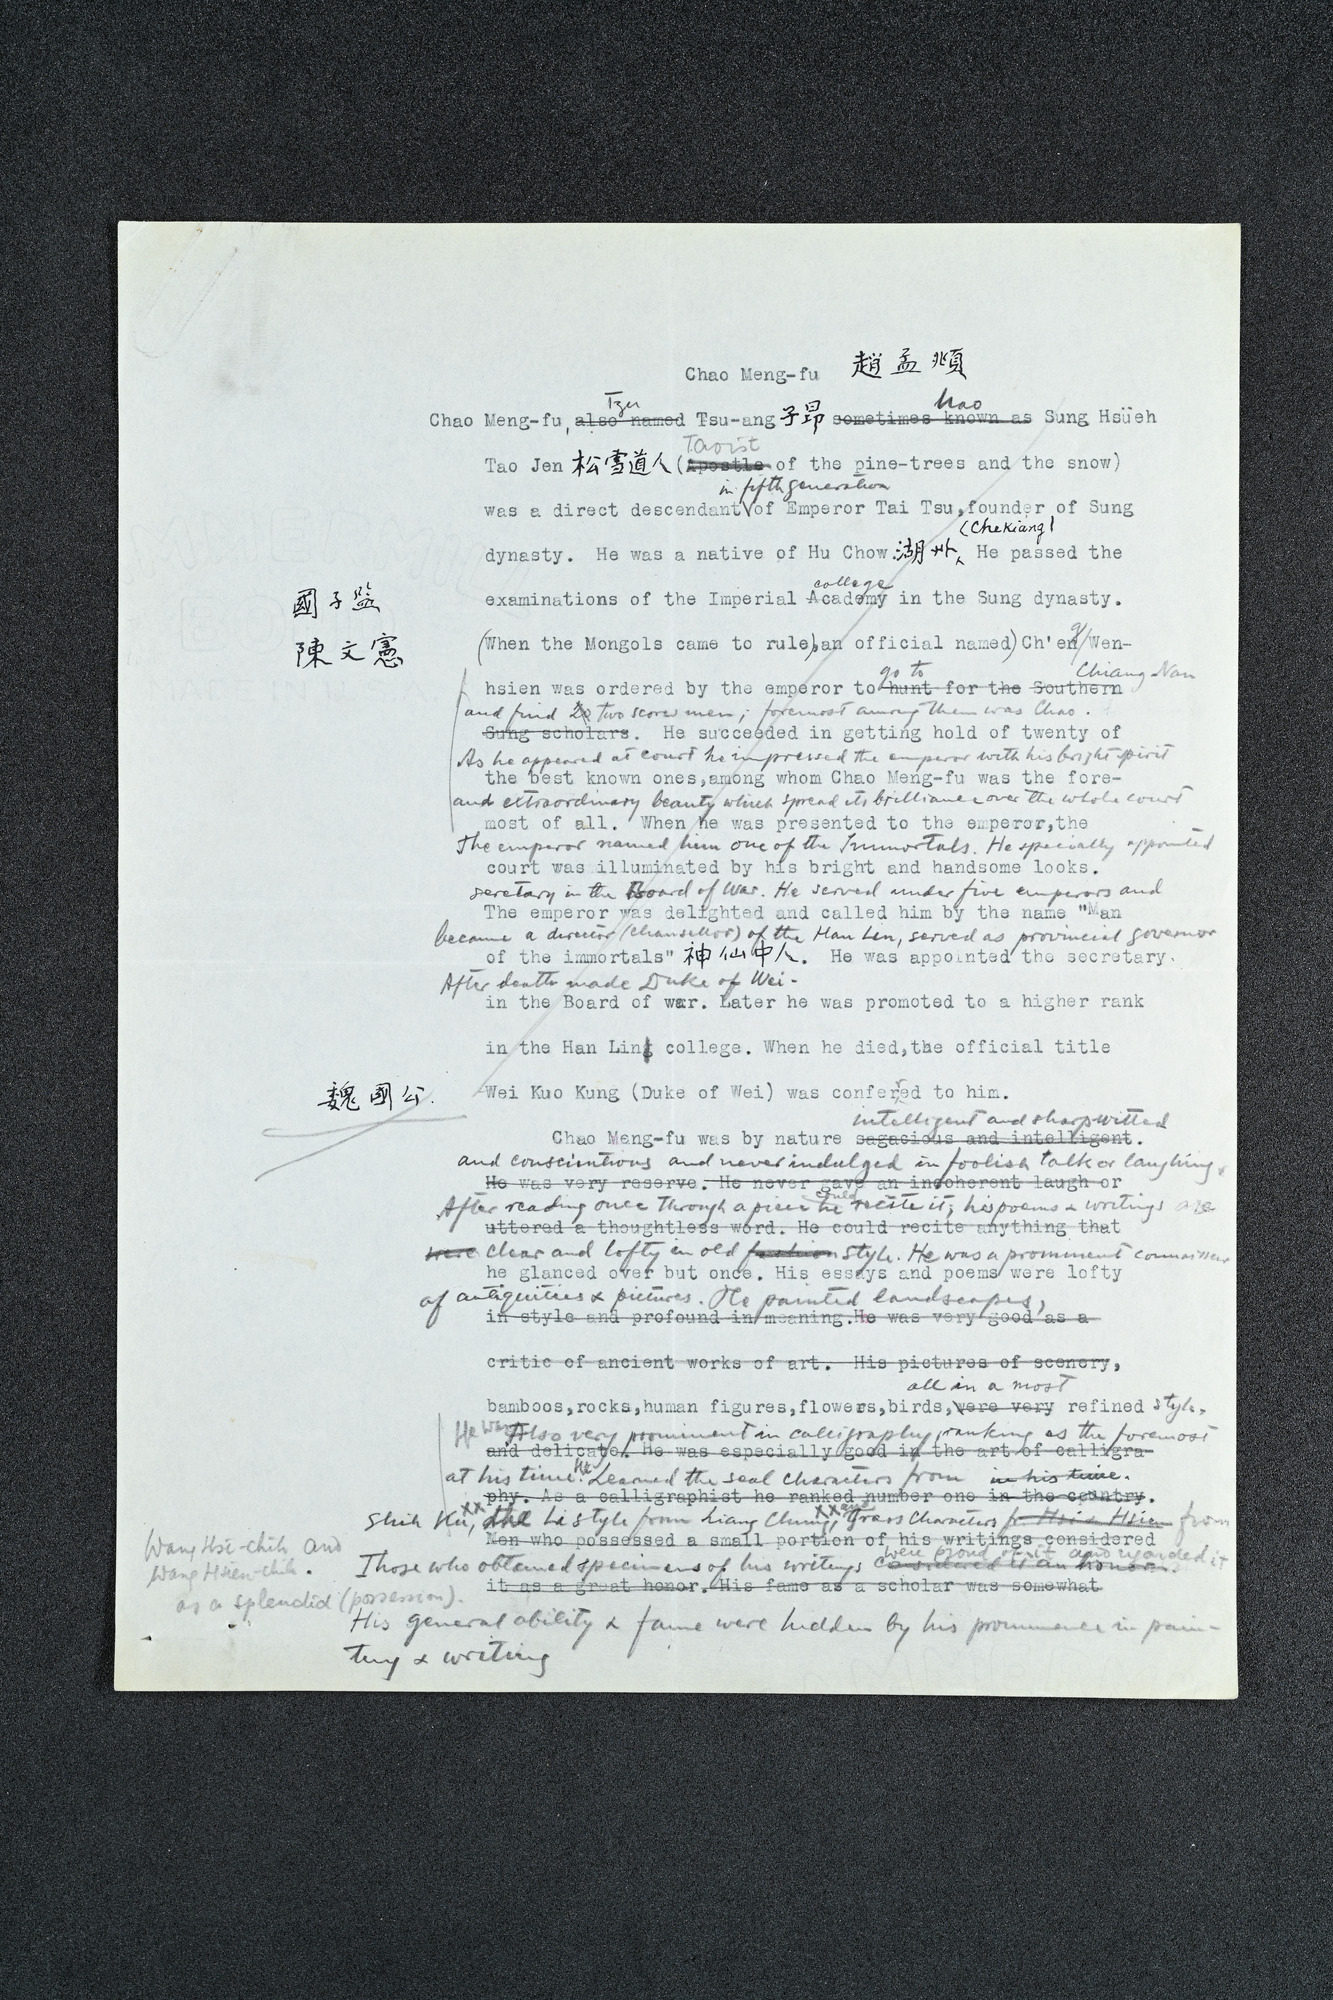 Chao Meng-fu 趙孟頫
Tzu hao
Chao Meng-fu, also named Tsu-ang 子昂 sometimes known as Sung Hsüeh
Taoist
Tao Jen 松雪道人 (Apostle of the pine-trees and the snow)
in fifth generation
was a direct descendant of Emperor Tai Tsu, founder of Sung
(Chekiang)
dynasty. He was a native of Hu Chow 湖州. He passed the
college
國子監 examinations of the Imperial Academy in the Sung dynasty.
陳文憲 (When the Mongols came to rule), an official named) Ch'en Wen-
go to Chiang Nan
hsien was ordered by the emperor to hunt for the Southern
and find two score men; foremost among them was Chao.
Sung scholars. He succeeded in getting hold of twenty of
As he appeared at court he impressed the emperor with his bright spirit
the best known ones, among whom Chao Meng-fu was the fore-
and extraordinary beauty which spread its brilliance over the whole court
most of all. When he was presented to the emperor, the
The emperor named him one of the Immortals. He specially appointed
court was illuminated by his bright and handsome looks.
secretary in the Board of War. He served under five emperors and
The emperor was delighted and called him by the name "Man
became a director (chancellor) of the Han Lin, served as provincial governor
of the immortals" 神仙中人. He was appointed the secretary.
After death made Duke of Wei-
in the Board of war. Later he was promoted to a higher rank
in the Han Ling college. When he died, the official title
魏國公. Wei Kuo Kung (Duke of Wei) was conferred to him.
intelligent and sharpwitted
Chao Meng-fu was by nature sagacious and intelligent.
and conscientious and never indulged in foolish talk or laughing.
He was very reserve. He never gave an incoherent laugh or
After reading once through a piece he could recite it; his poems & writings are
uttered a thoughtless word. He could recite anything that
were clear and lofty in old fashion style. He was a prominent connoisseur
he glanced over but once. His essays and poems were lofty
of antiquities & pictures. He painted landscapes,
in style and profound in meaning. He was very good as a
critic of ancient works of art. His pictures of scenery,
all in a most
bamboos, rocks, human figures, flowers, birds, were very refined style.
He was Also very prominent in calligraphy, ranking as the foremost
and delicate. He was especially good in the art of calligra-
at his time. He Learned the seal characters from in his time.
phy. As a calligraphist he ranked number one in the country.
Shih Ku, the Li style from Liang Chung, and grass characters fr Hsi & Hsien from
Men who possessed a small portion of his writings considered
Wang Hsi-chih and
Wang Hsien-chih.
Those who obtained specimens of his writings considered it an honour. were proud of it and regarded it
it as a great honor. His fame as a scholar was somewhat
as a splendid (possession).
His general ability & fame were hidden by his prominence in pain-
ting & writing